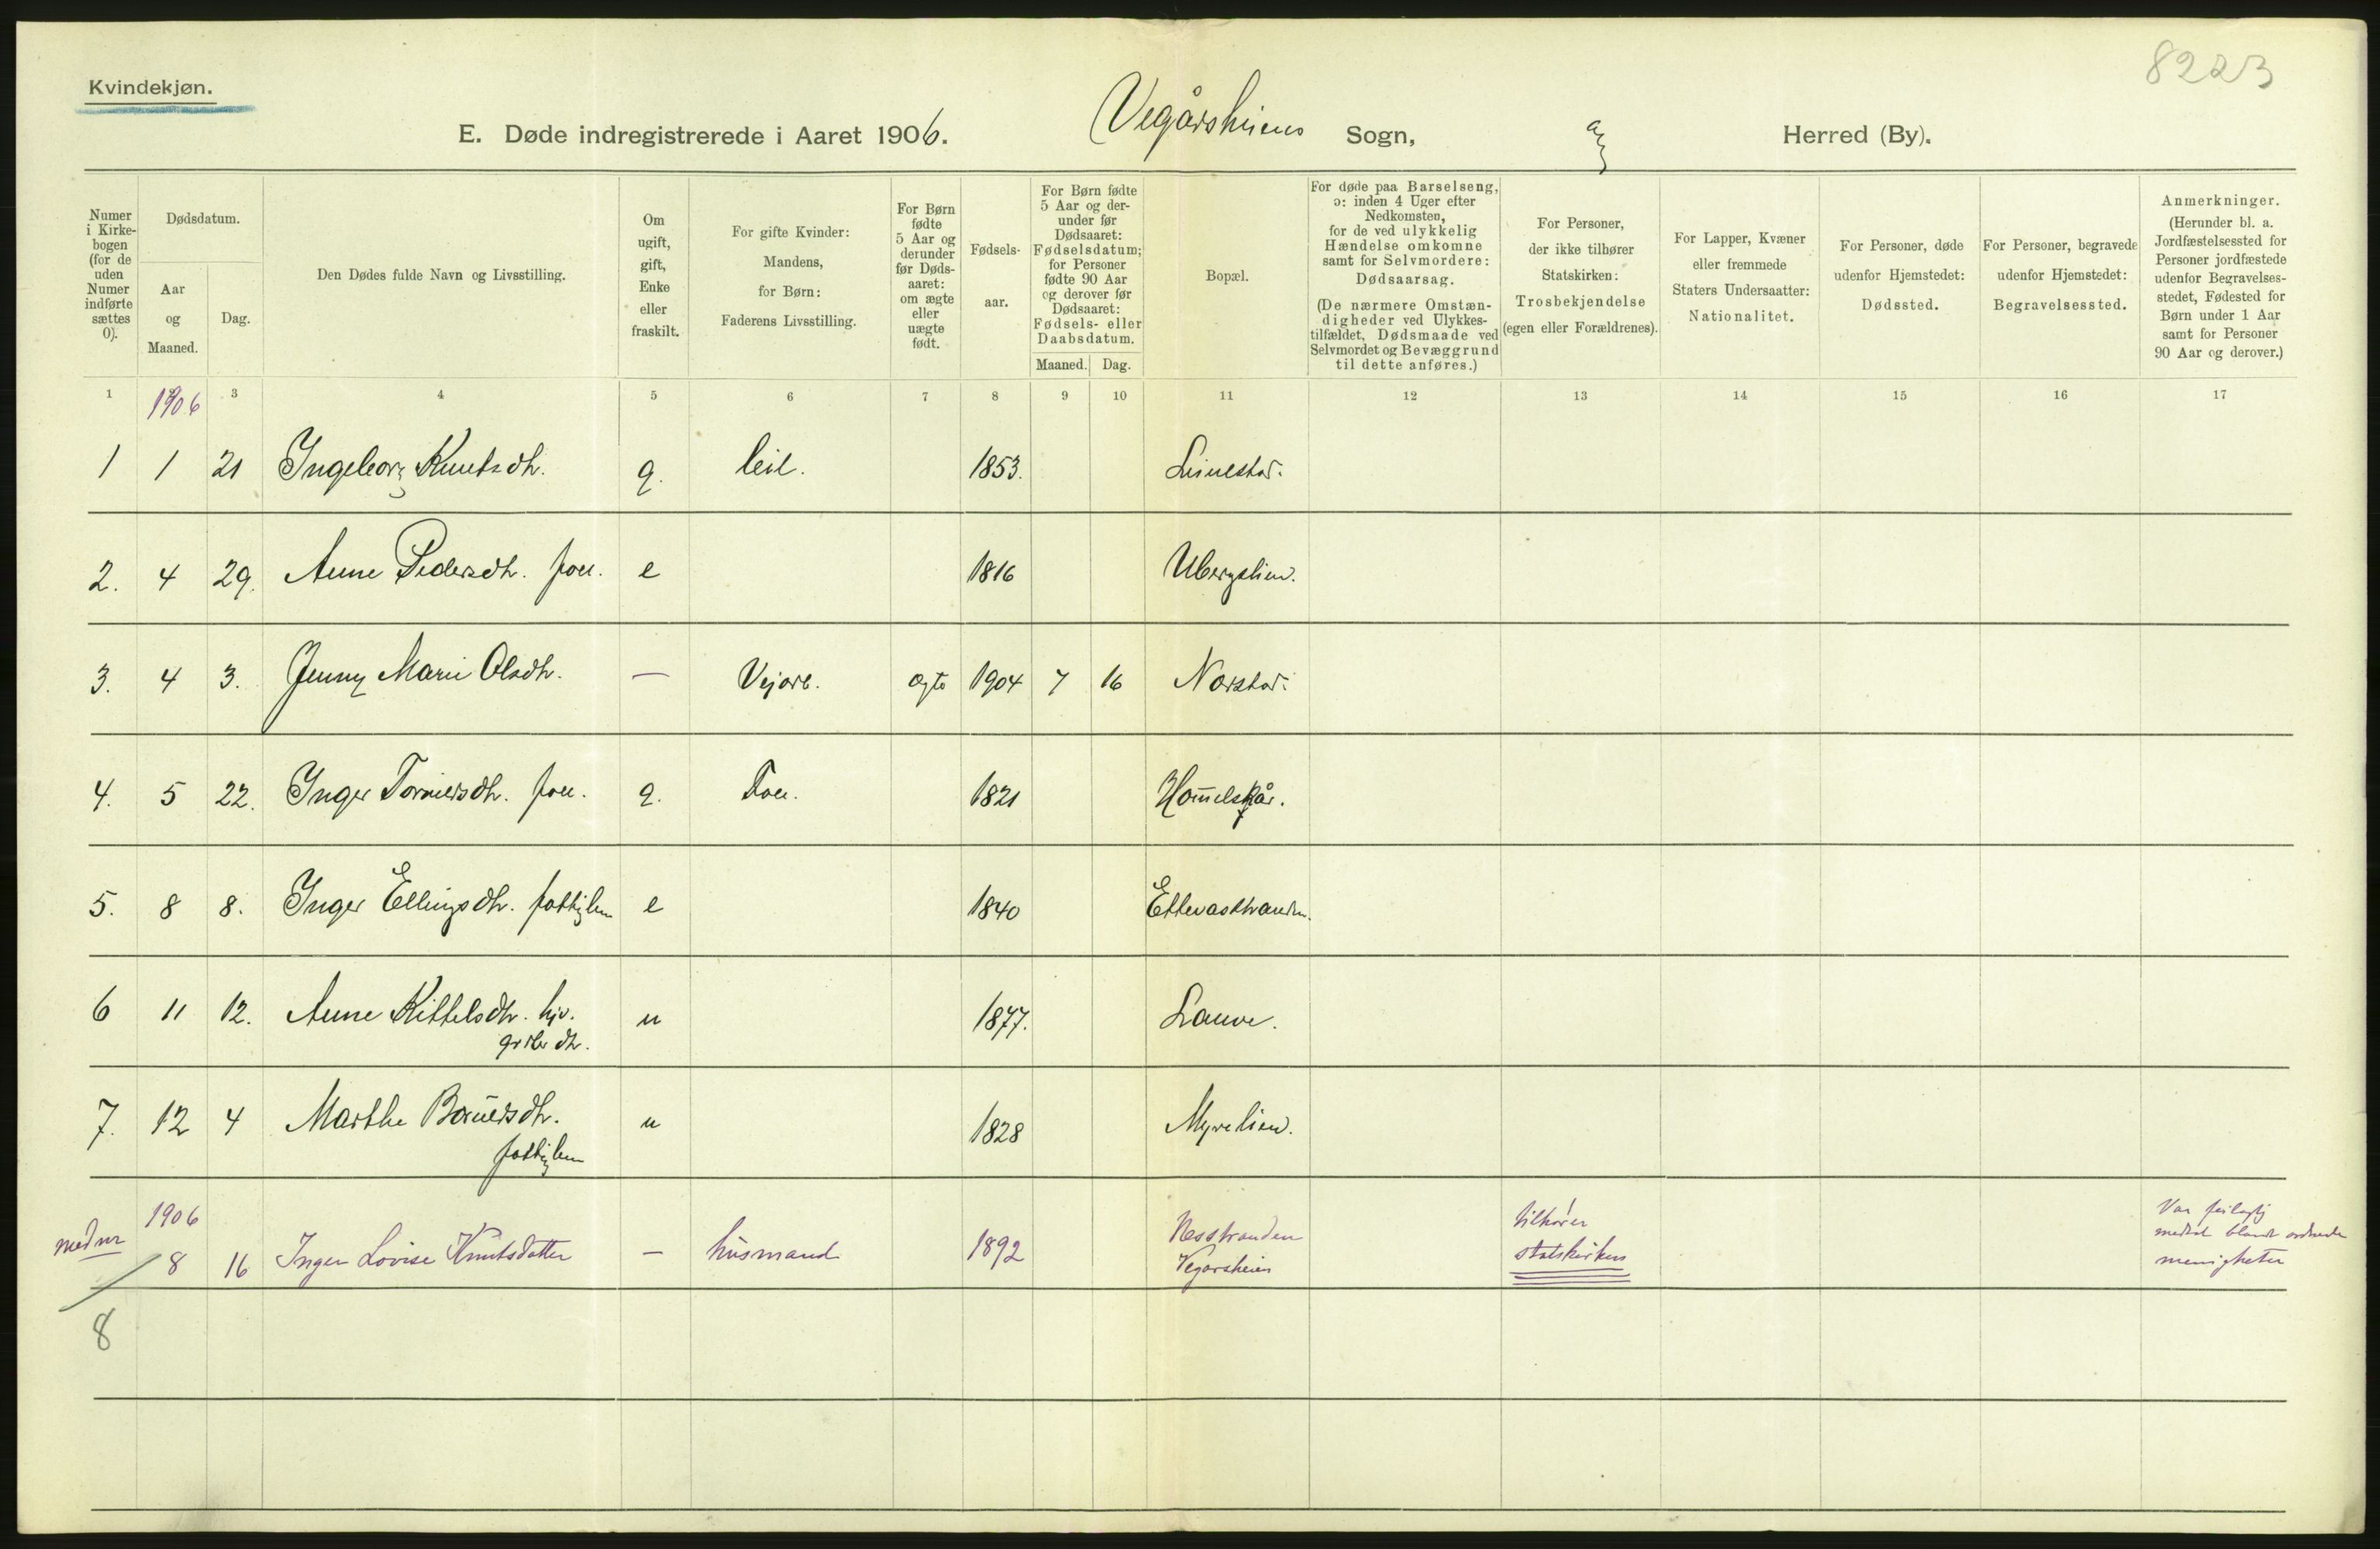 8223
Kvindekjøn.
E. Døde indregistrerede i Aaret 1906. Vegårsheiens Sogn, Herred (By).
Numer i Kirkebogen (for de uden Numer indførte sættes 0).
Dødsdatum.
Aar og Maaned.
Dag.
Den Dødes fulde Navn og Livsstilling.
Om ugift, gift, Enke eller fraskilt.
For gifte Kvinder: Mandens, for Børn: Faderens Livsstilling.
For Børn fødte 5 Aar og derunder før Dødsaaret: om ægte eller uægte født.
Fødselsaar.
For Børn fødte 5 Aar og derunder før Dødsaaret: Fødselsdatum; for Personer fødte 90 Aar og derover før Dødsaaret: Fødsels- eller Daabsdatum.
Maaned. Dag.
Bopæl.
For døde paa Barselseng, ɔ: inden 4 Uger efter Nedkomsten, for de ved ulykkelig Hændelse omkomne samt for Selvmordere: Dødsaarsag.
(De nærmere Omstændigheder ved Ulykkestilfældet, Dødsmaade ved Selvmordet og Bevæggrund til dette anføres.)
For Personer, der ikke tilhører Statskirken: Trosbekjendelse (egen eller Forældrenes).
For Lapper, Kvæner eller fremmede Staters Undersaatter: Nationalitet.
For Personer, døde udenfor Hjemstedet: Dødssted.
For Personer, begravede udenfor Hjemstedet: Begravelsessted.
Anmerkninger.
(Herunder bl. a. Jordfæstelsessted for Personer jordfæstede udenfor Begravelsesstedet, Fødested for Børn under 1 Aar samt for Personer 90 Aar og derover.)
1 1906 3 4 5 6 7 8 9 10 11 12 13 14 15 16 17
1 1 21 Ingeborg Knutsdtr. g. leil. 1853.
2. 4 29. Anne Pedersdtr. e 1816 Ubergslien.
3. 4 3. Jenny Marie Olsdtr. — Vejarb. ægte 1904 7 16 Norstad.
4. 5 22. Inger g. 1821
5. 8 8. Inger Ellingsdtr. fattiglem e 1840
6 11 12. Anne Kittelsdtr. u 1877. Lauve.
7. 12 4 Marthe u 1828 Myrelien.
fattiglem
1906 Nesstranden tilhører
8 16 Inger Lovise Knutsdatter — husmand 1892 Vegarsheien statskirken
menigheter
8